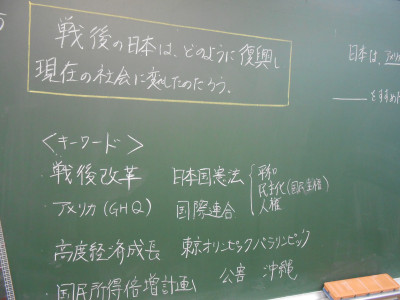 戦後の日本は、どのように復興し
現在の社会に変化したのだろう。
日本は、アメリカ
をすすめた
<キーワード>
・戦後改革 日本国憲法{平和 民主化(国民主権) 人権
・アメリカ(GHQ) 国際連合
高度経済成長 東京オリンピックパラリンピック
・国民所得倍増計画 公害 沖縄